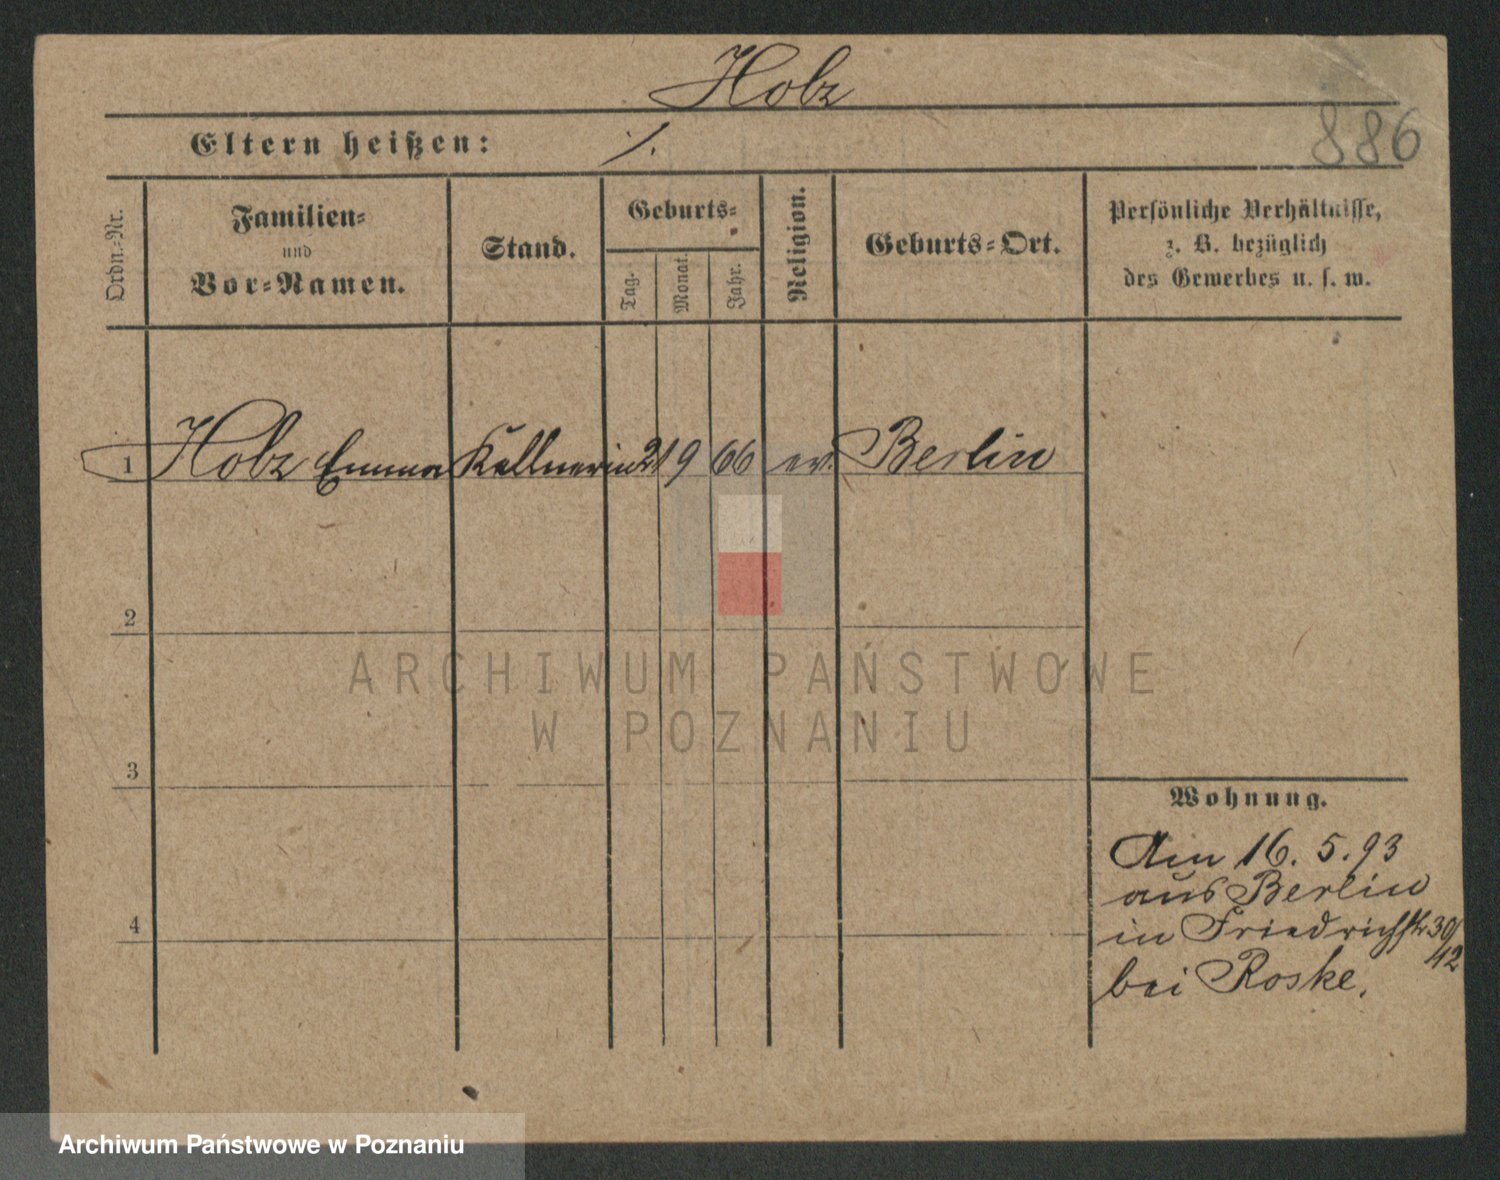 Holz
886
Eltern heißen: ·/.
Ordn.-Nr.
Familien-
und
Vor-Namen.
Stand.
Geburts-
Tag.
Monat.
Jahr.
Religion.
Geburts-Ort.
Persönliche Verhältnisse,
z. B. bezüglich
des Gewerbes u. s. w.
1 Holz Emma Kellnerin 21 9 66 ev. Berlin
2
ARCHIWUM PAŃSTWOWE
W POZNANIU
3
Wohnung.
Am 16. 5. 93
aus Berlin
in Friedrichstr 30/
12
bei Roske.
4
Archiwum Państwowe w Poznaniu